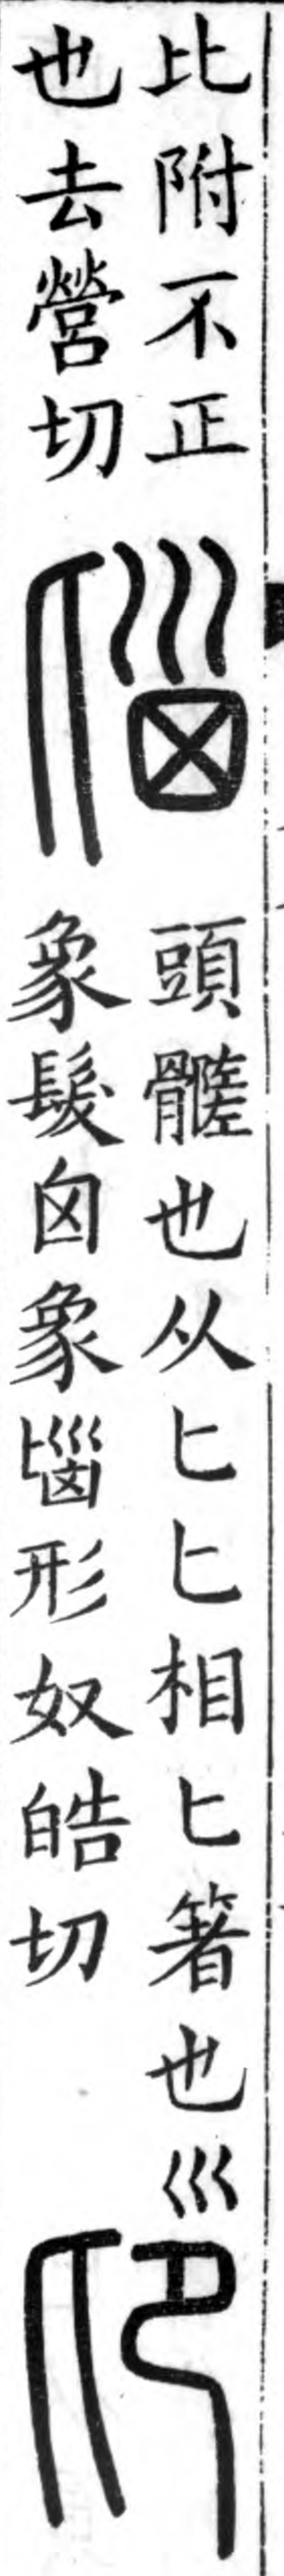 比附不正
也去營切
𡿺
頭髓也从匕匕相匕著也巛
象髮囟象𡿺形奴皓切
卬